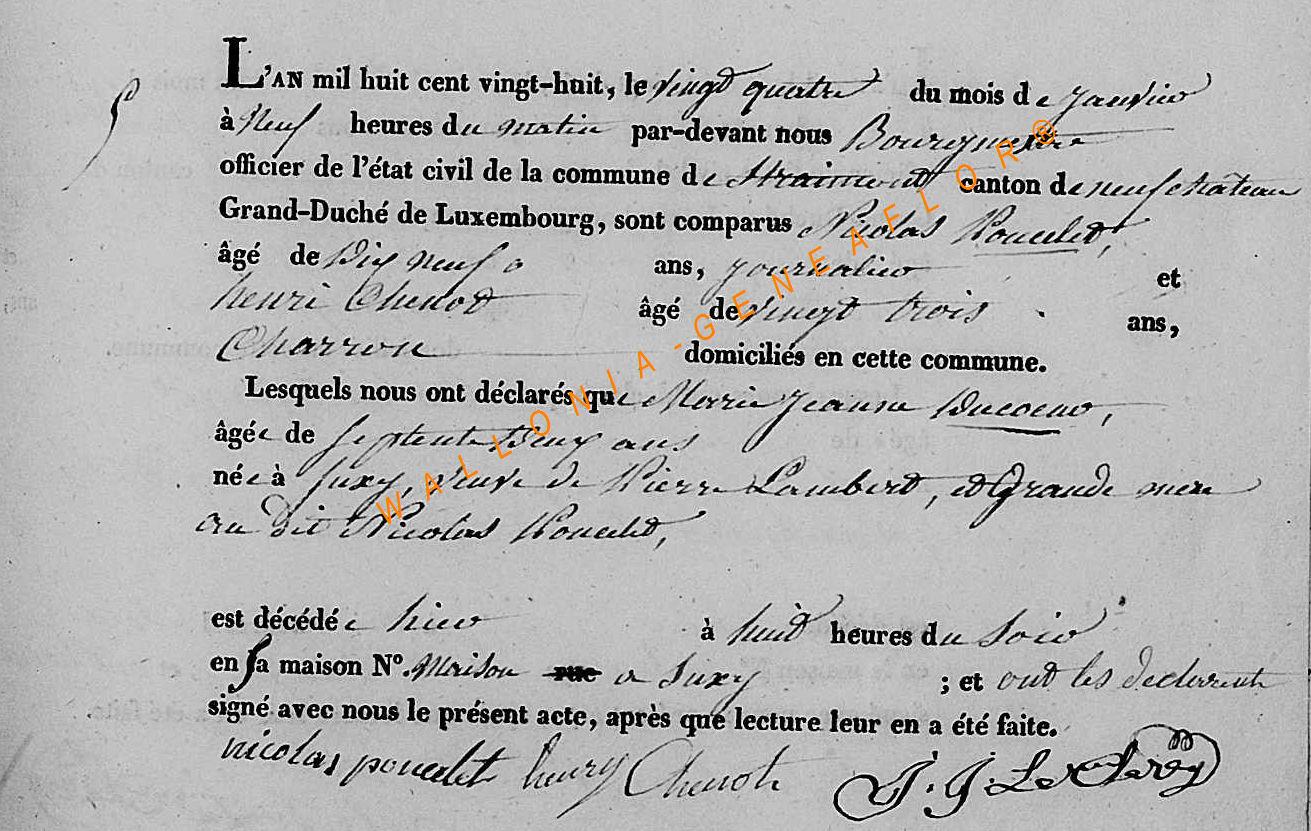 5
L'AN mil huit cent vingt-huit, le vingt quatre du mois de janvier
à neuf heures du matin par-devant nous Bourgmestre
officier de l'état civil de la commune de Straimont canton de neufchâteau
Grand-Duché de Luxembourg, sont comparus Nicolas Poncelet,
âgé de Dix neuf ans, journalier et
henri Chenot âgé de vingt trois ans,
Charron domiciliés en cette commune.
Lesquels nous ont déclarés que Marie Jeanne
âgée de septente Deux ans
née à Suxy, veuve de Pierre Lambert, et Grande mere
au dit Nicolas Poncelet,
est décédée hier à huit heures du soir
en sa maison N°. Maison rue a Suxy ; et ont les declarents
signé avec nous le présent acte, après que lecture leur en a été faite.
nicolas poncelet henry Chenot J. J.
WALLONIA-GENEAFLOR®